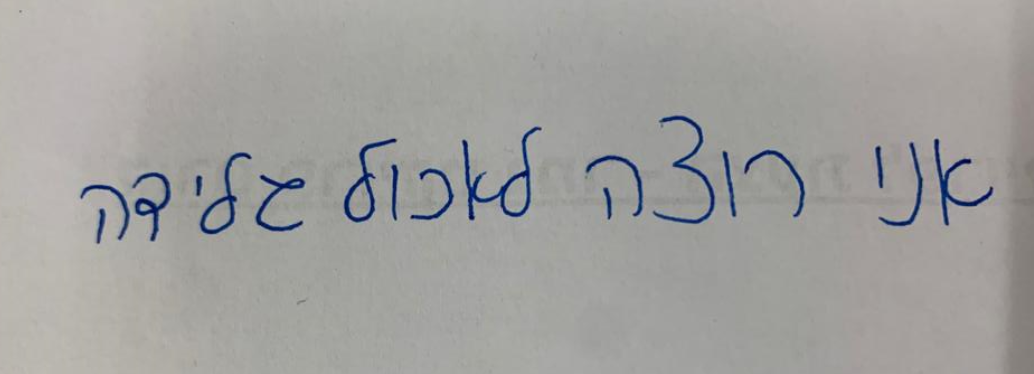 אני רוצה לאכול גלידה